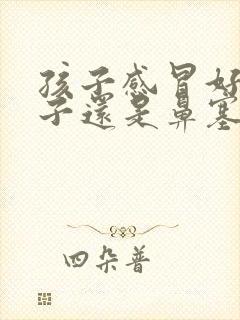 孩子感冒好
子還是鼻塞
四朵普